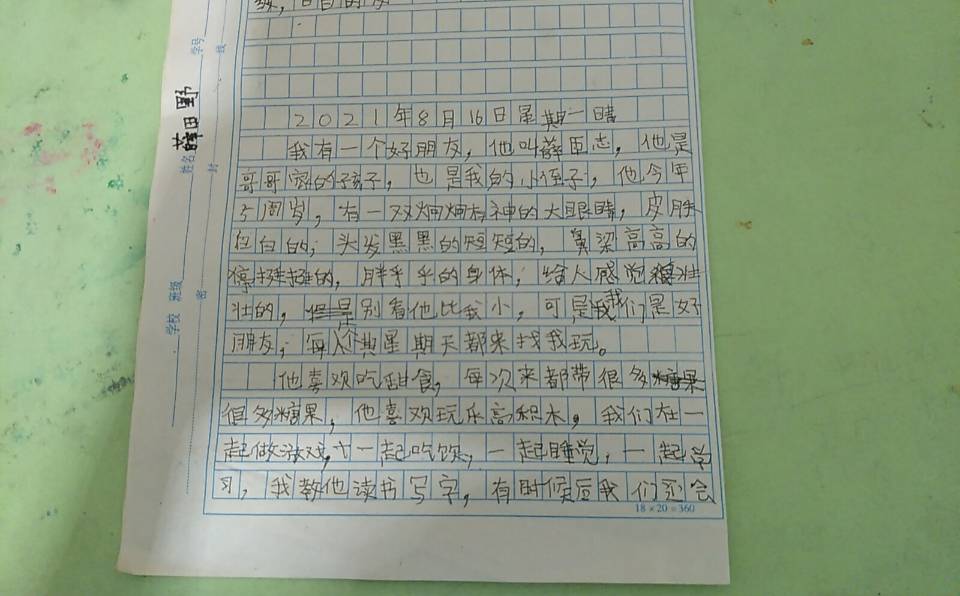 2021年8月16日星期一晴
我有一个好朋友，他叫薛臣志，他是
哥哥家的孩子，也是我的小侄子，他今年
5周岁，有一双炯炯有神的大眼睛，皮肤
白白的；头发黑黑的短短的，鼻梁高高的
挺挺的，胖乎乎的身体；给人感觉壮
壮的，别看他比我小，可是我们是好
朋友；每个星期天都来找我玩。
他喜欢吃甜食，每次来都带很多
很多糖果，他喜欢玩乐高积木，我们在一
起做游戏，一起吃饭，一起睡觉，一起学
习，我教他读书写字，有时候后我们还会
18×20=360
学校 班级 姓名 薛田野 学号
密 封 线